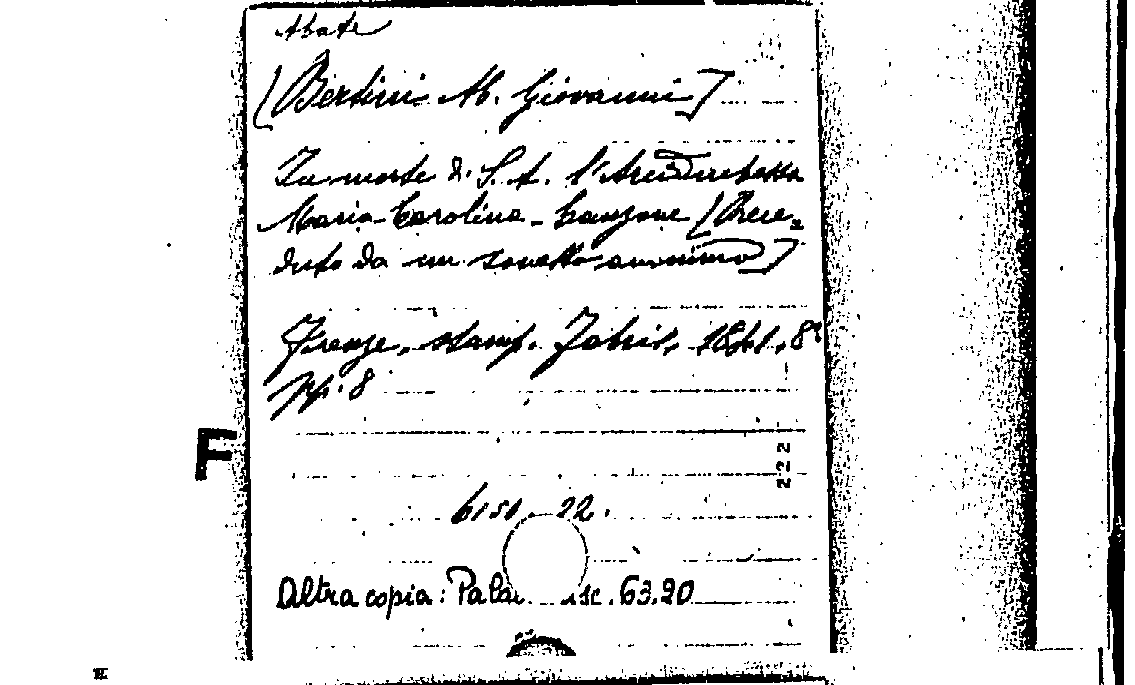 Abate
[Bertini Ab. Giovanni]
La morte di S. A. l'Arciduchessa
Maria Carolina - Canzone [Prece_
duto da un sonetto anonimo]
Firenze, stamp. Fabris, 18 , 8º
pp. 8
222
F
6151. 22.
Altra copia: Pala isc. 63.20